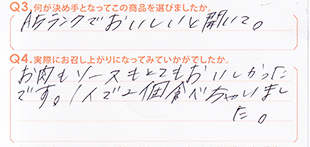 Q3.何が決め手となってこの商品を選びましたか。
A5ランクでおいしいと聞いて。
Q4.実際にお召し上がりになってみていかがでしたか。
お肉もソースもとてもおいしかった
です。1人で2個食べちゃいまし
た。